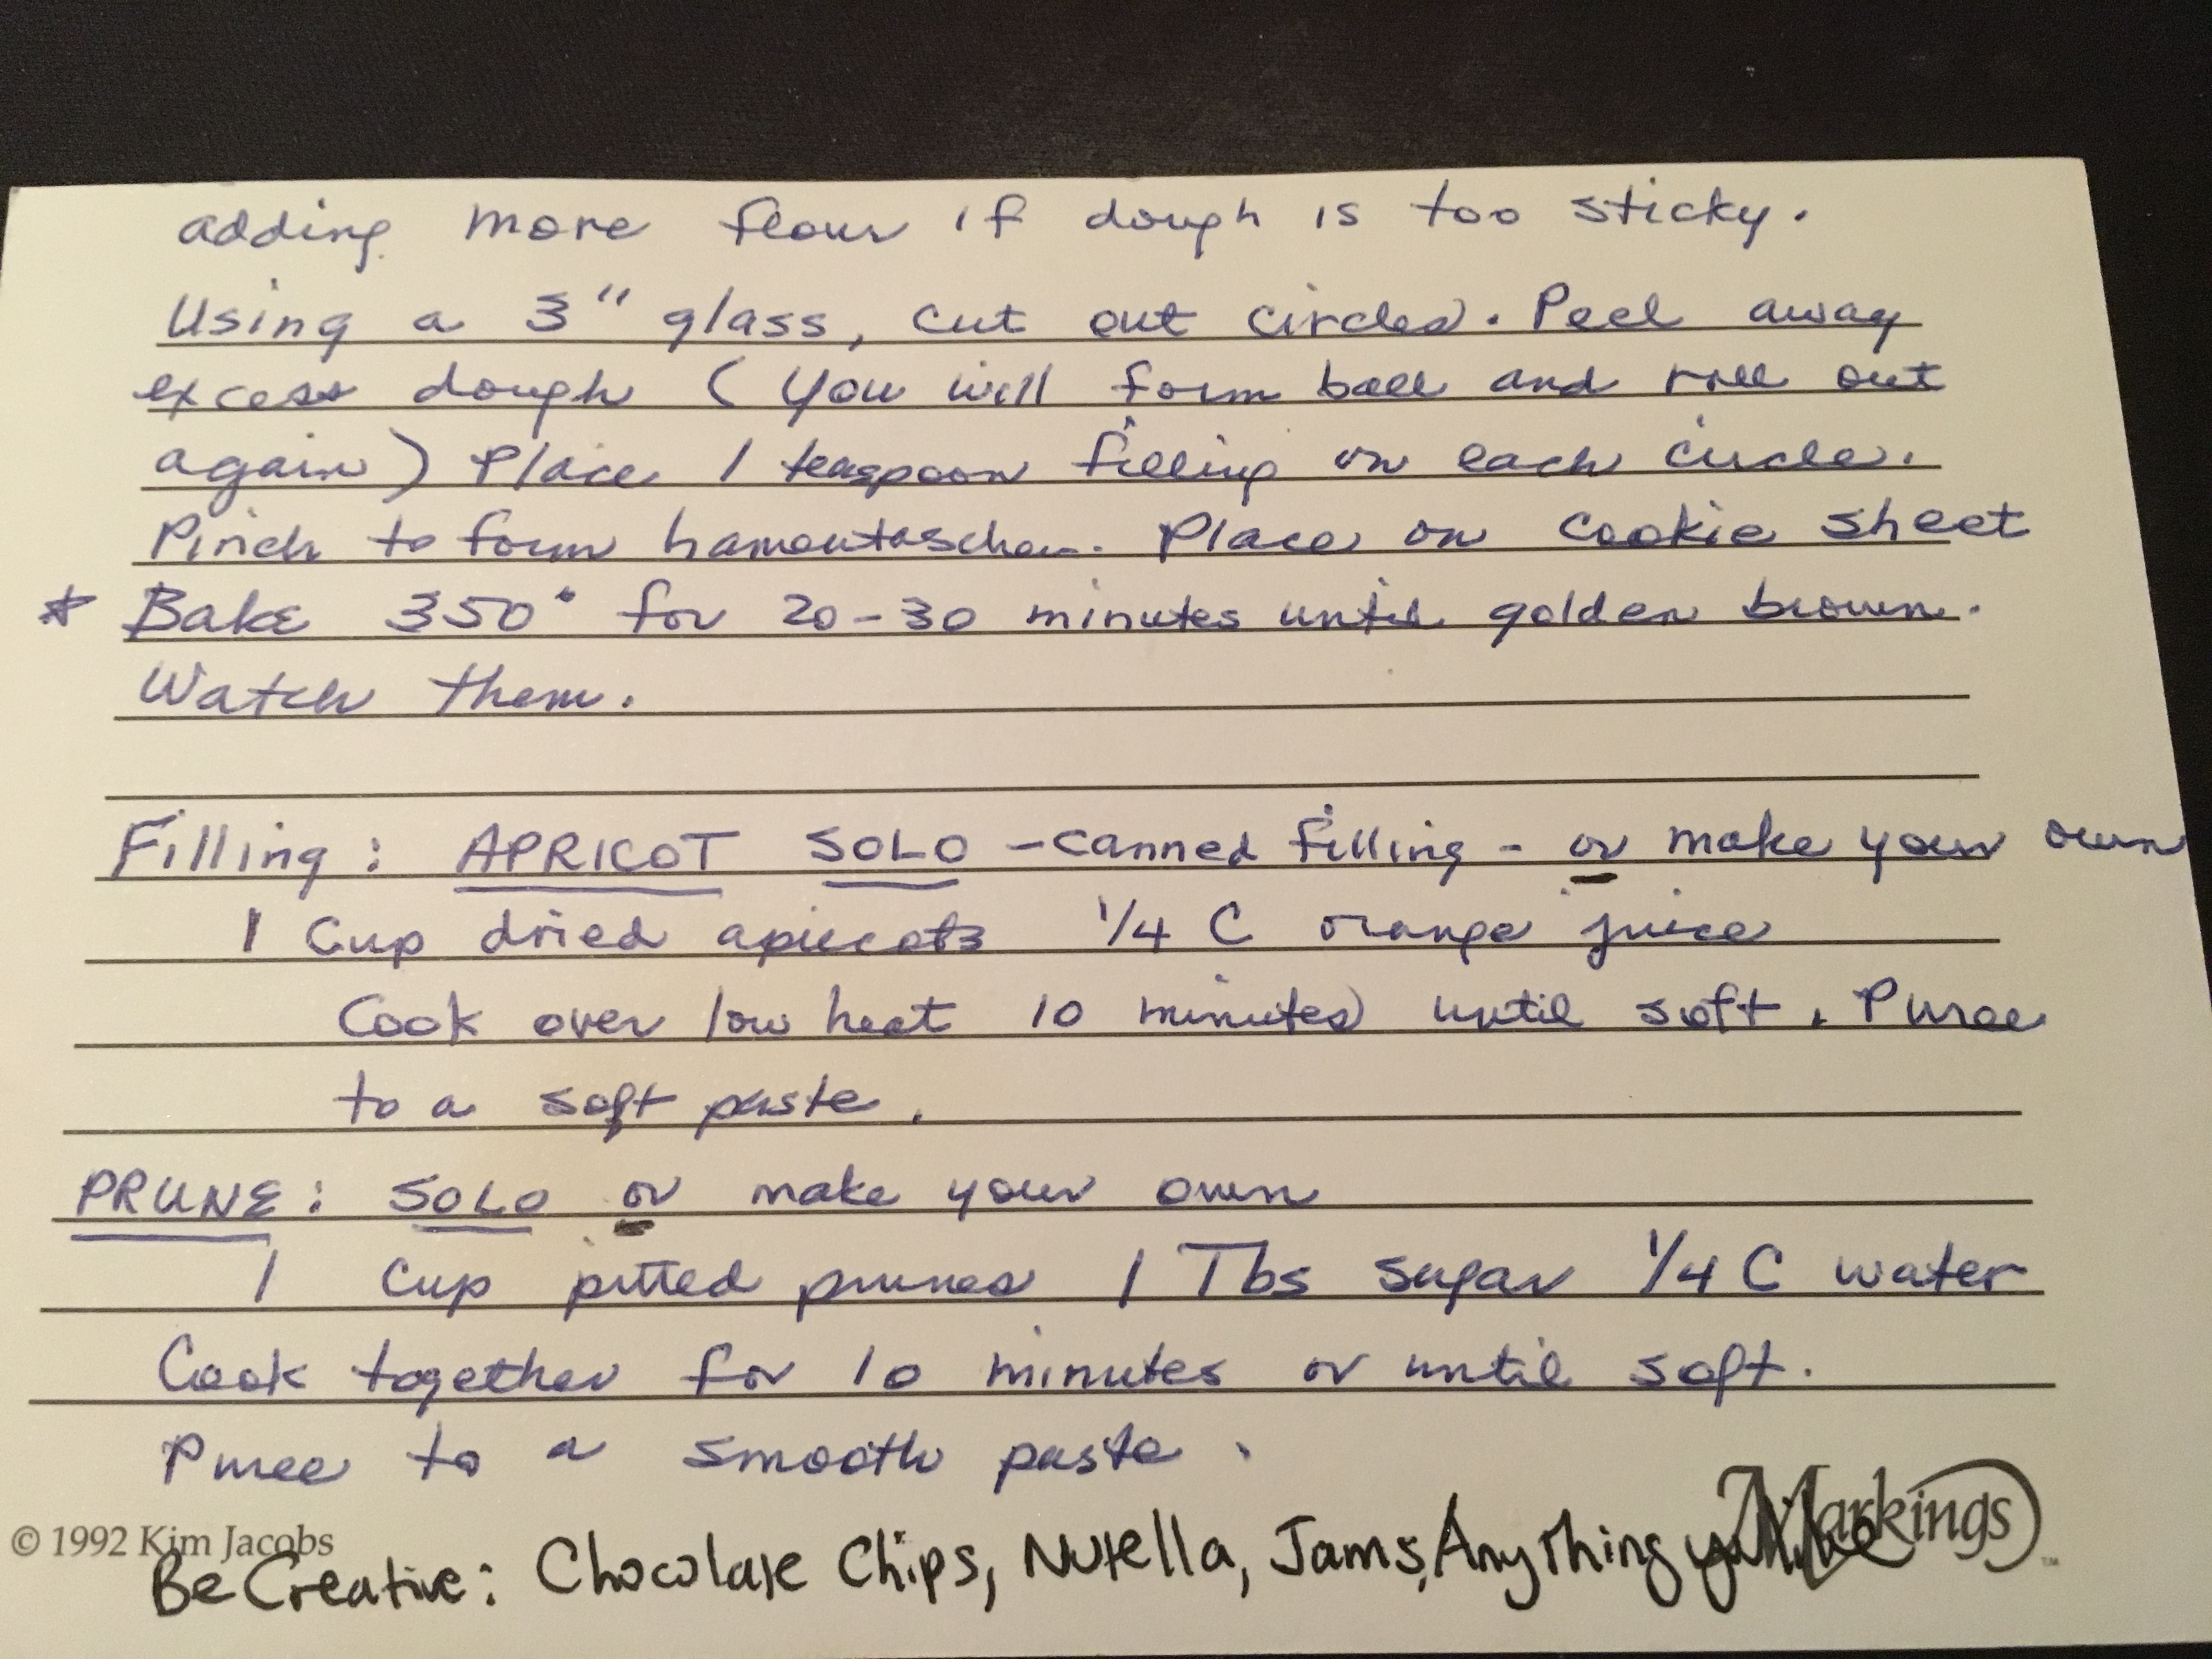 adding more flour if dough is too sticky.
Using a 3" glass, cut out circles. Peel away
excess dough (you will form ball and roll out
again) Place 1 teaspoon filling on each circle.
Pinch to form hamentaschen. Place on cookie sheet
* Bake 350° for 20-30 minutes until golden brown.
Watch them.
Filling: APRICOT SOLO - canned filling - or make your own
1 Cup dried apricots 1/4 C orange juice
Cook over low heat 10 minutes until soft. Puree
to a soft paste.
PRUNE: SOLO or make your own
1 cup pitted prunes 1 Tbs sugar 1/4 C water
Cook together for 10 minutes or until soft.
Puree to a smooth paste.
Markings
© 1992 Kim Jacobs
Be Creative: Chocolate Chips, Nutella, Jams, Anything you like